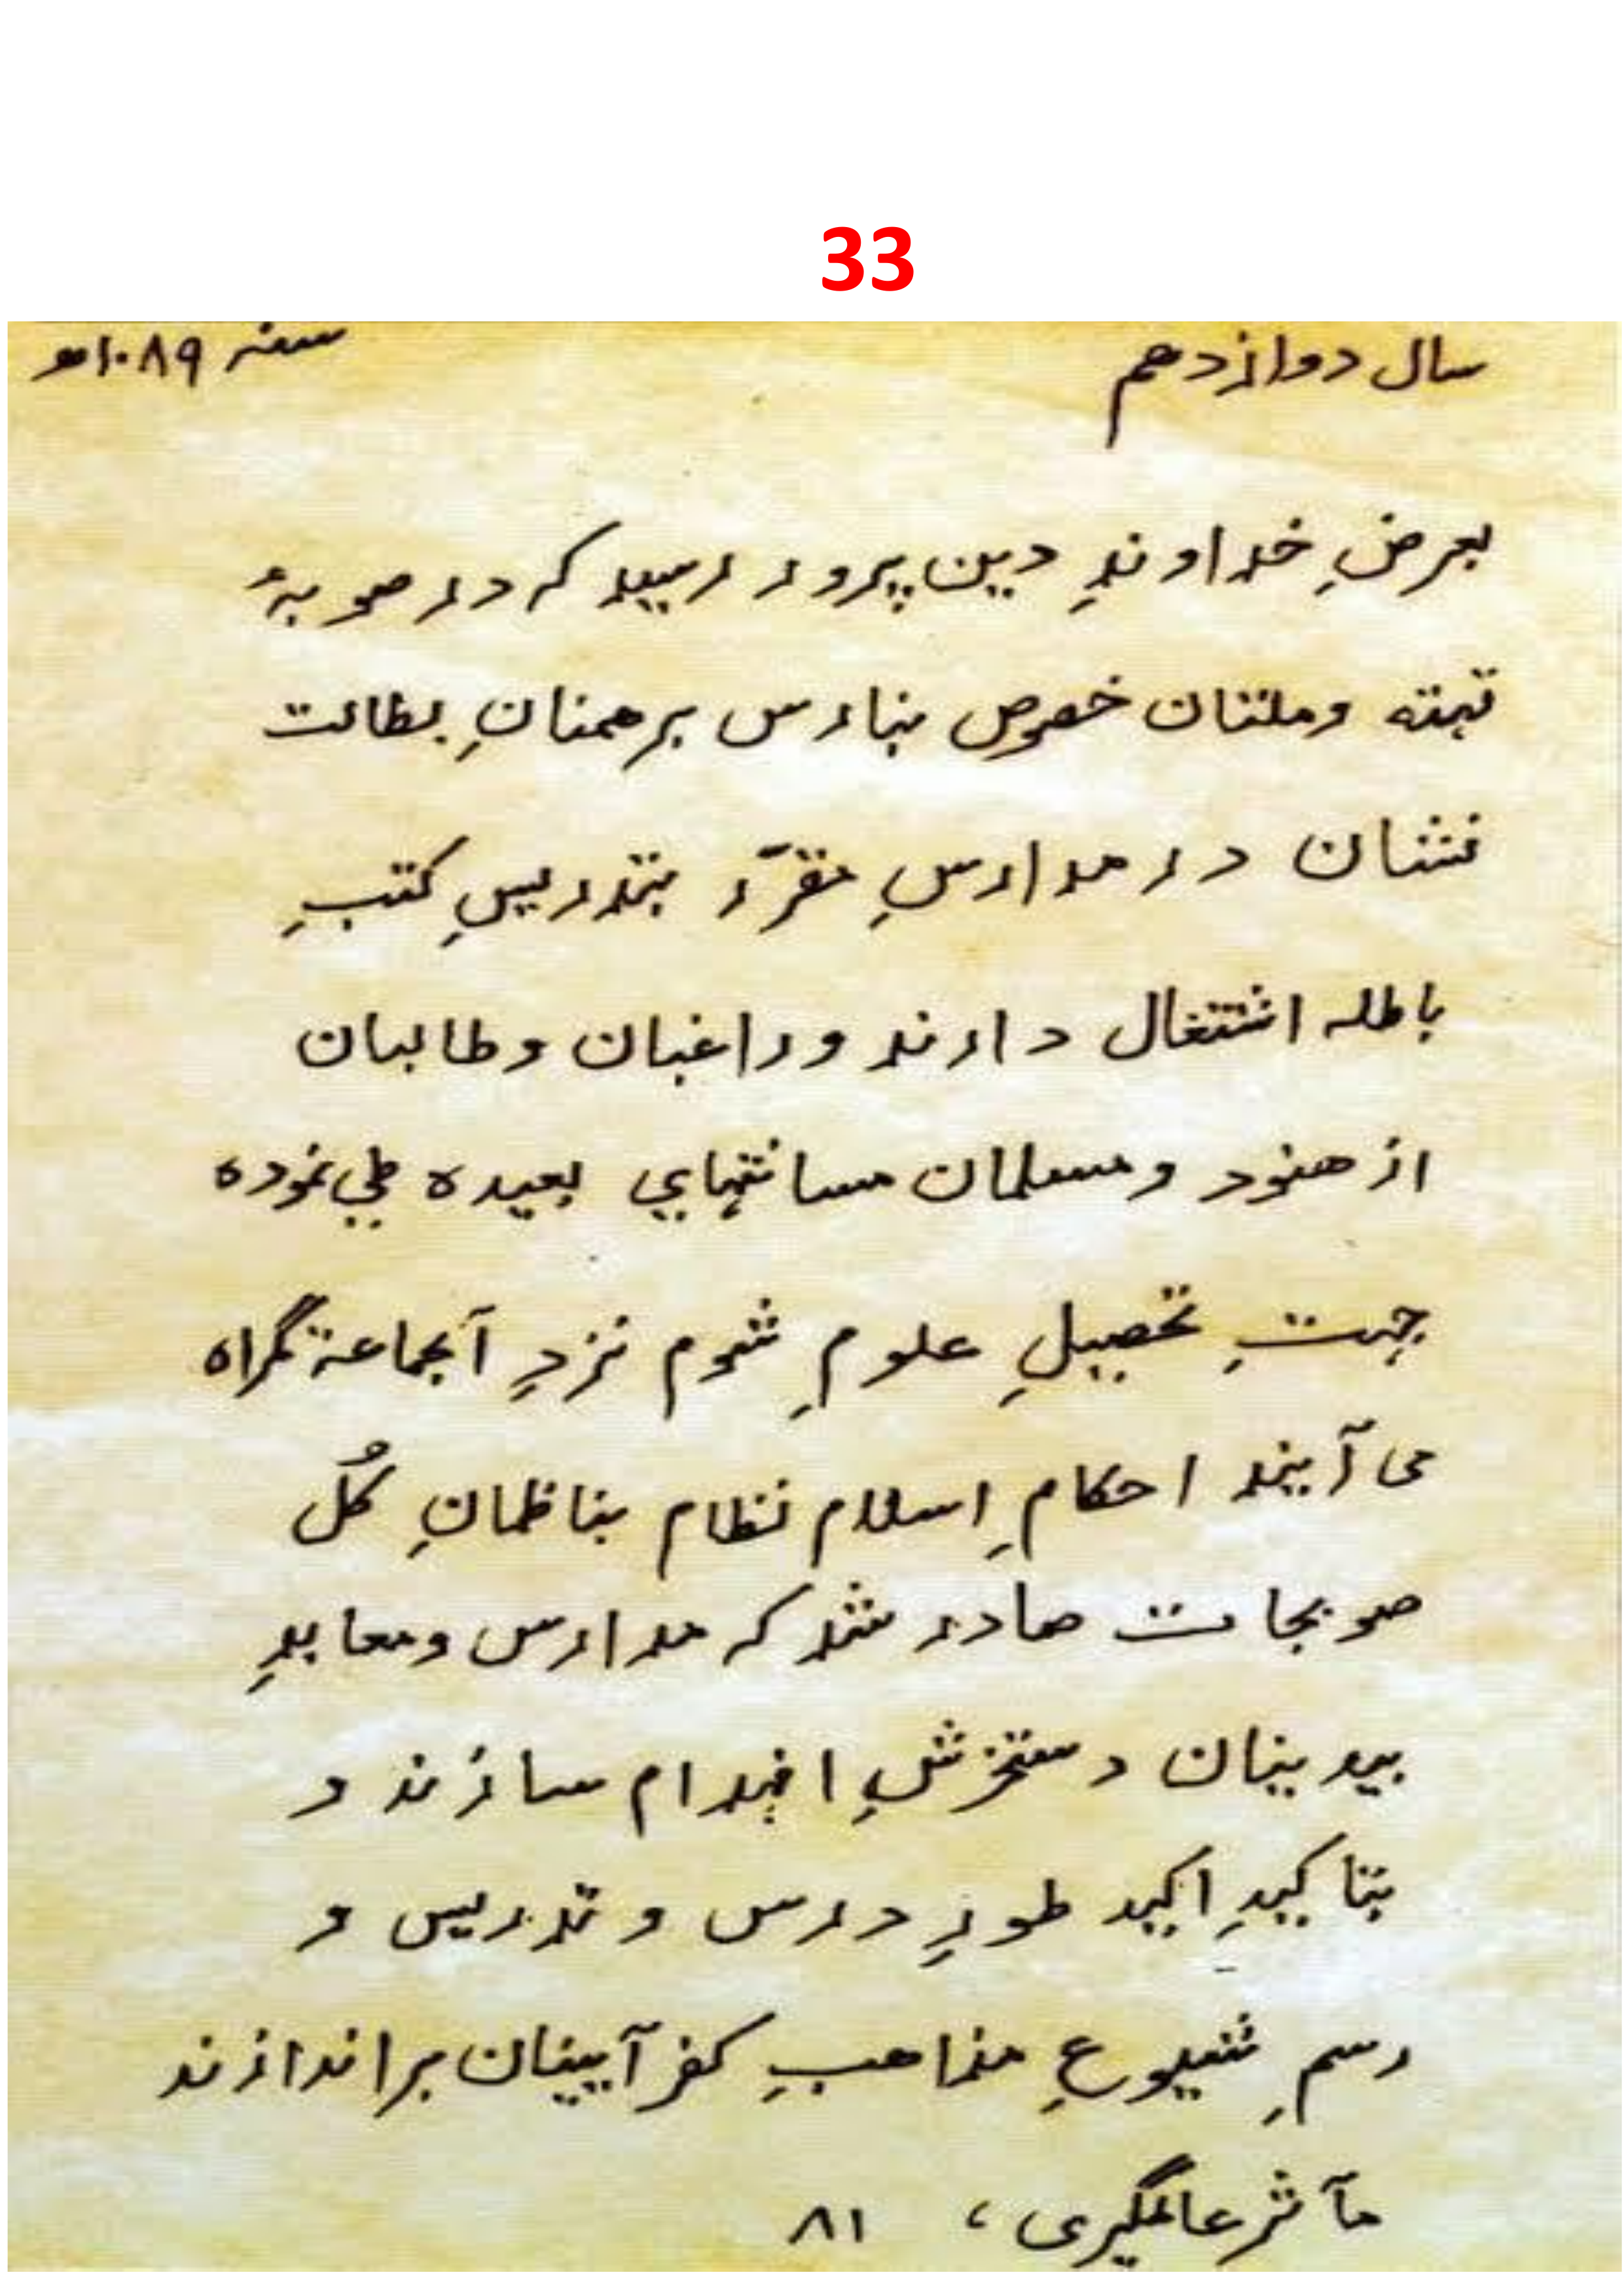 33
سال دوازدهم سنه ١٠٨٩ه
بعرضِ خداوندِ دین پرور رسید که در صوبۀ
تهته و ملتان خصوص بنارس برهمنانِ بطالت
نشان در مدارسِ مقرّر بتدریسِ کتبِ
باطله اشتغال دارند و راغبان و طالبان
از هنود و مسلمان مسافتهایِ بعیده طی نموده
جهتِ تحصیلِ علومِ شوم نزدِ آنجماعۀ گمراه
می آیند احکامِ اسلام نظام بناظمانِ کُل
صوبجات صادر شد که مدارس و معابدِ
بیدینان دستخوشِ انهدام سازند و
بتاکیدِ اکید طورِ درس و تدریس و
رسمِ شیوعِ مذاهبِ کفر آیینان براندازند
مآثر عالمگیری ، ٨١